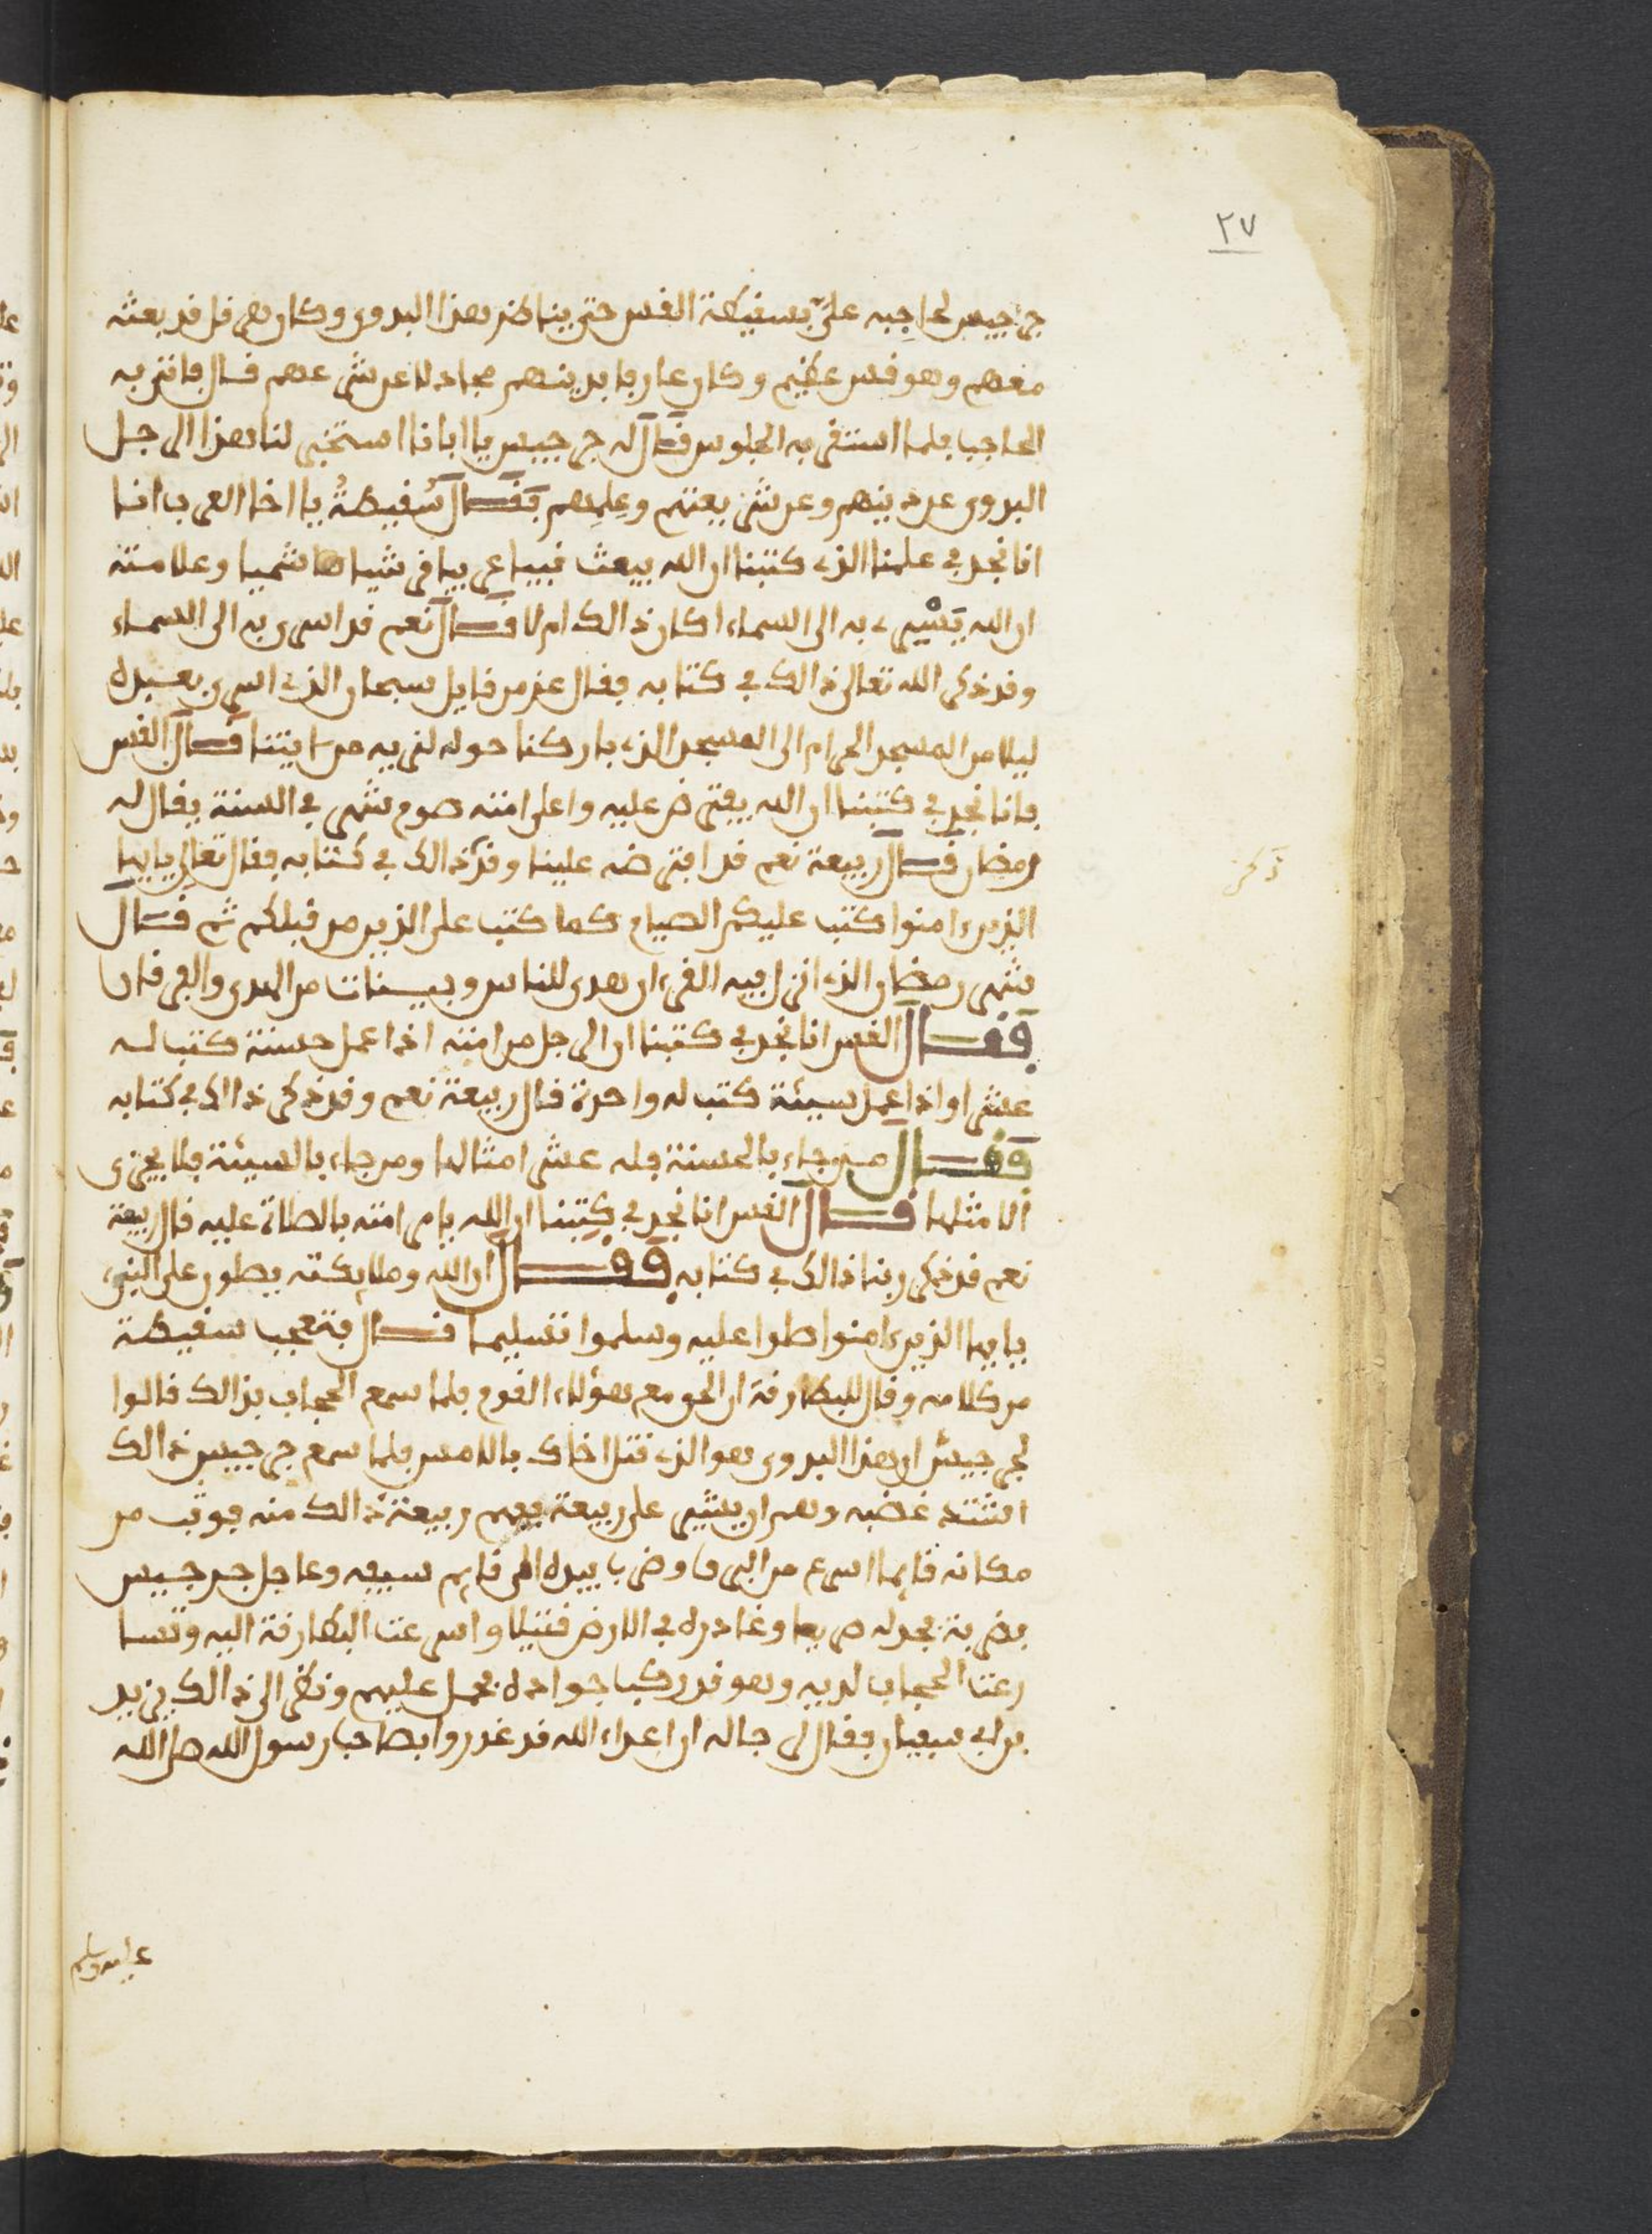 ٢٧
جرجيس لحاجبه علي بسقيطة القس حتى يناظر هذا البدوي وكان هرقل قد بعثه
معهم وهو قس عظيم وكان عارفا بدينهم مجادلا عن شرعهم قال فاتى به
الحاجب فلما استقر به الجلوس قال له جرجيس يا ابانا استخبر لنا هذا الرجل
البدوي عن دينهم وعن شريعتهم وعلمهم فقال سقيطة يا اخا العرب انا
انا نجد في علمنا الذي كتبنا ان الله يبعث نبيا عربيا قرشيا هاشميا وعلامته
ان الله يسري به الى السماء اكان ذالك ام لا قال نعم قد اسري به الى السماء
وقد ذكر الله تعالى ذالك في كتابه فقال عز من قايل سبحان الذي اسرى بعبده
ليلا من المسجد الحرام الى المسجد الذي باركنا حوله لنريه من ايتنا قال القس
فانا نجد في كتبنا ان الله يفترض عليه واعلى امته صوم شهر في السنة يقال له
رمضان قال ربيعة نعم قد افترضه علينا وقد ذالك في كتابه فقال تعالى يايها
ذكر
الذين ءامنوا كتب عليكم الصيام كما كتب على الذين من قبلكم ثم قال
شهر رمضان الذي انزل فيه القرءان هدى للناس وبينات من الهدى والفرقان
فقال القس انا نجد في كتبنا ان الرجل من امته اذا عمل حسنة كتب له
عشرا واذا عمل سيئة كتب له واحدة قال ربيعة نعم وقد ذكر ذالك في كتابه
فقال من جاء بالحسنة فله عشر امثالها ومن جاء بالسيئة فلا يجزى
الا مثلها قال القس انا نجد في كتبنا ان الله يامر امته بالصلاة عليه قال ربيعة
نعم قد ذكر ربنا ذالك في كتابه فقال ان الله وملايكته يصلون على النبي
يايها الذين ءامنوا صلوا عليه وسلموا تسليما قال فتعجب سقيطة
من كلامه وقال للبطارقة ان الحق مع هؤلاء القوم فلما سمع الحجاب بذالك قالوا
لجرجيس ان هذا البدوي هو الذي قتل اخاك بالامس فلما سمع جرجيس ذالك
اشتد غضبه وهم ان يشير على ربيعة ففهم ربيعة ذالك منه فوثب من
مكانه قايما اسرع من البرق وضرب بيده الى قايم سيفه وعاجل جرجيس
بضربة فجدله صريعا وغادره في الارض قتيلا واسرعت البطارقة اليه وتسا
رعت الحجاب لديه وهو قد ركب جواده فحمل عليهم ونظر الى ذالك يزيد
بن ابي سفيان فقال لرجاله ان اعداء الله قد غدروا بصاحب رسول الله صلى الله
عليه وسلم